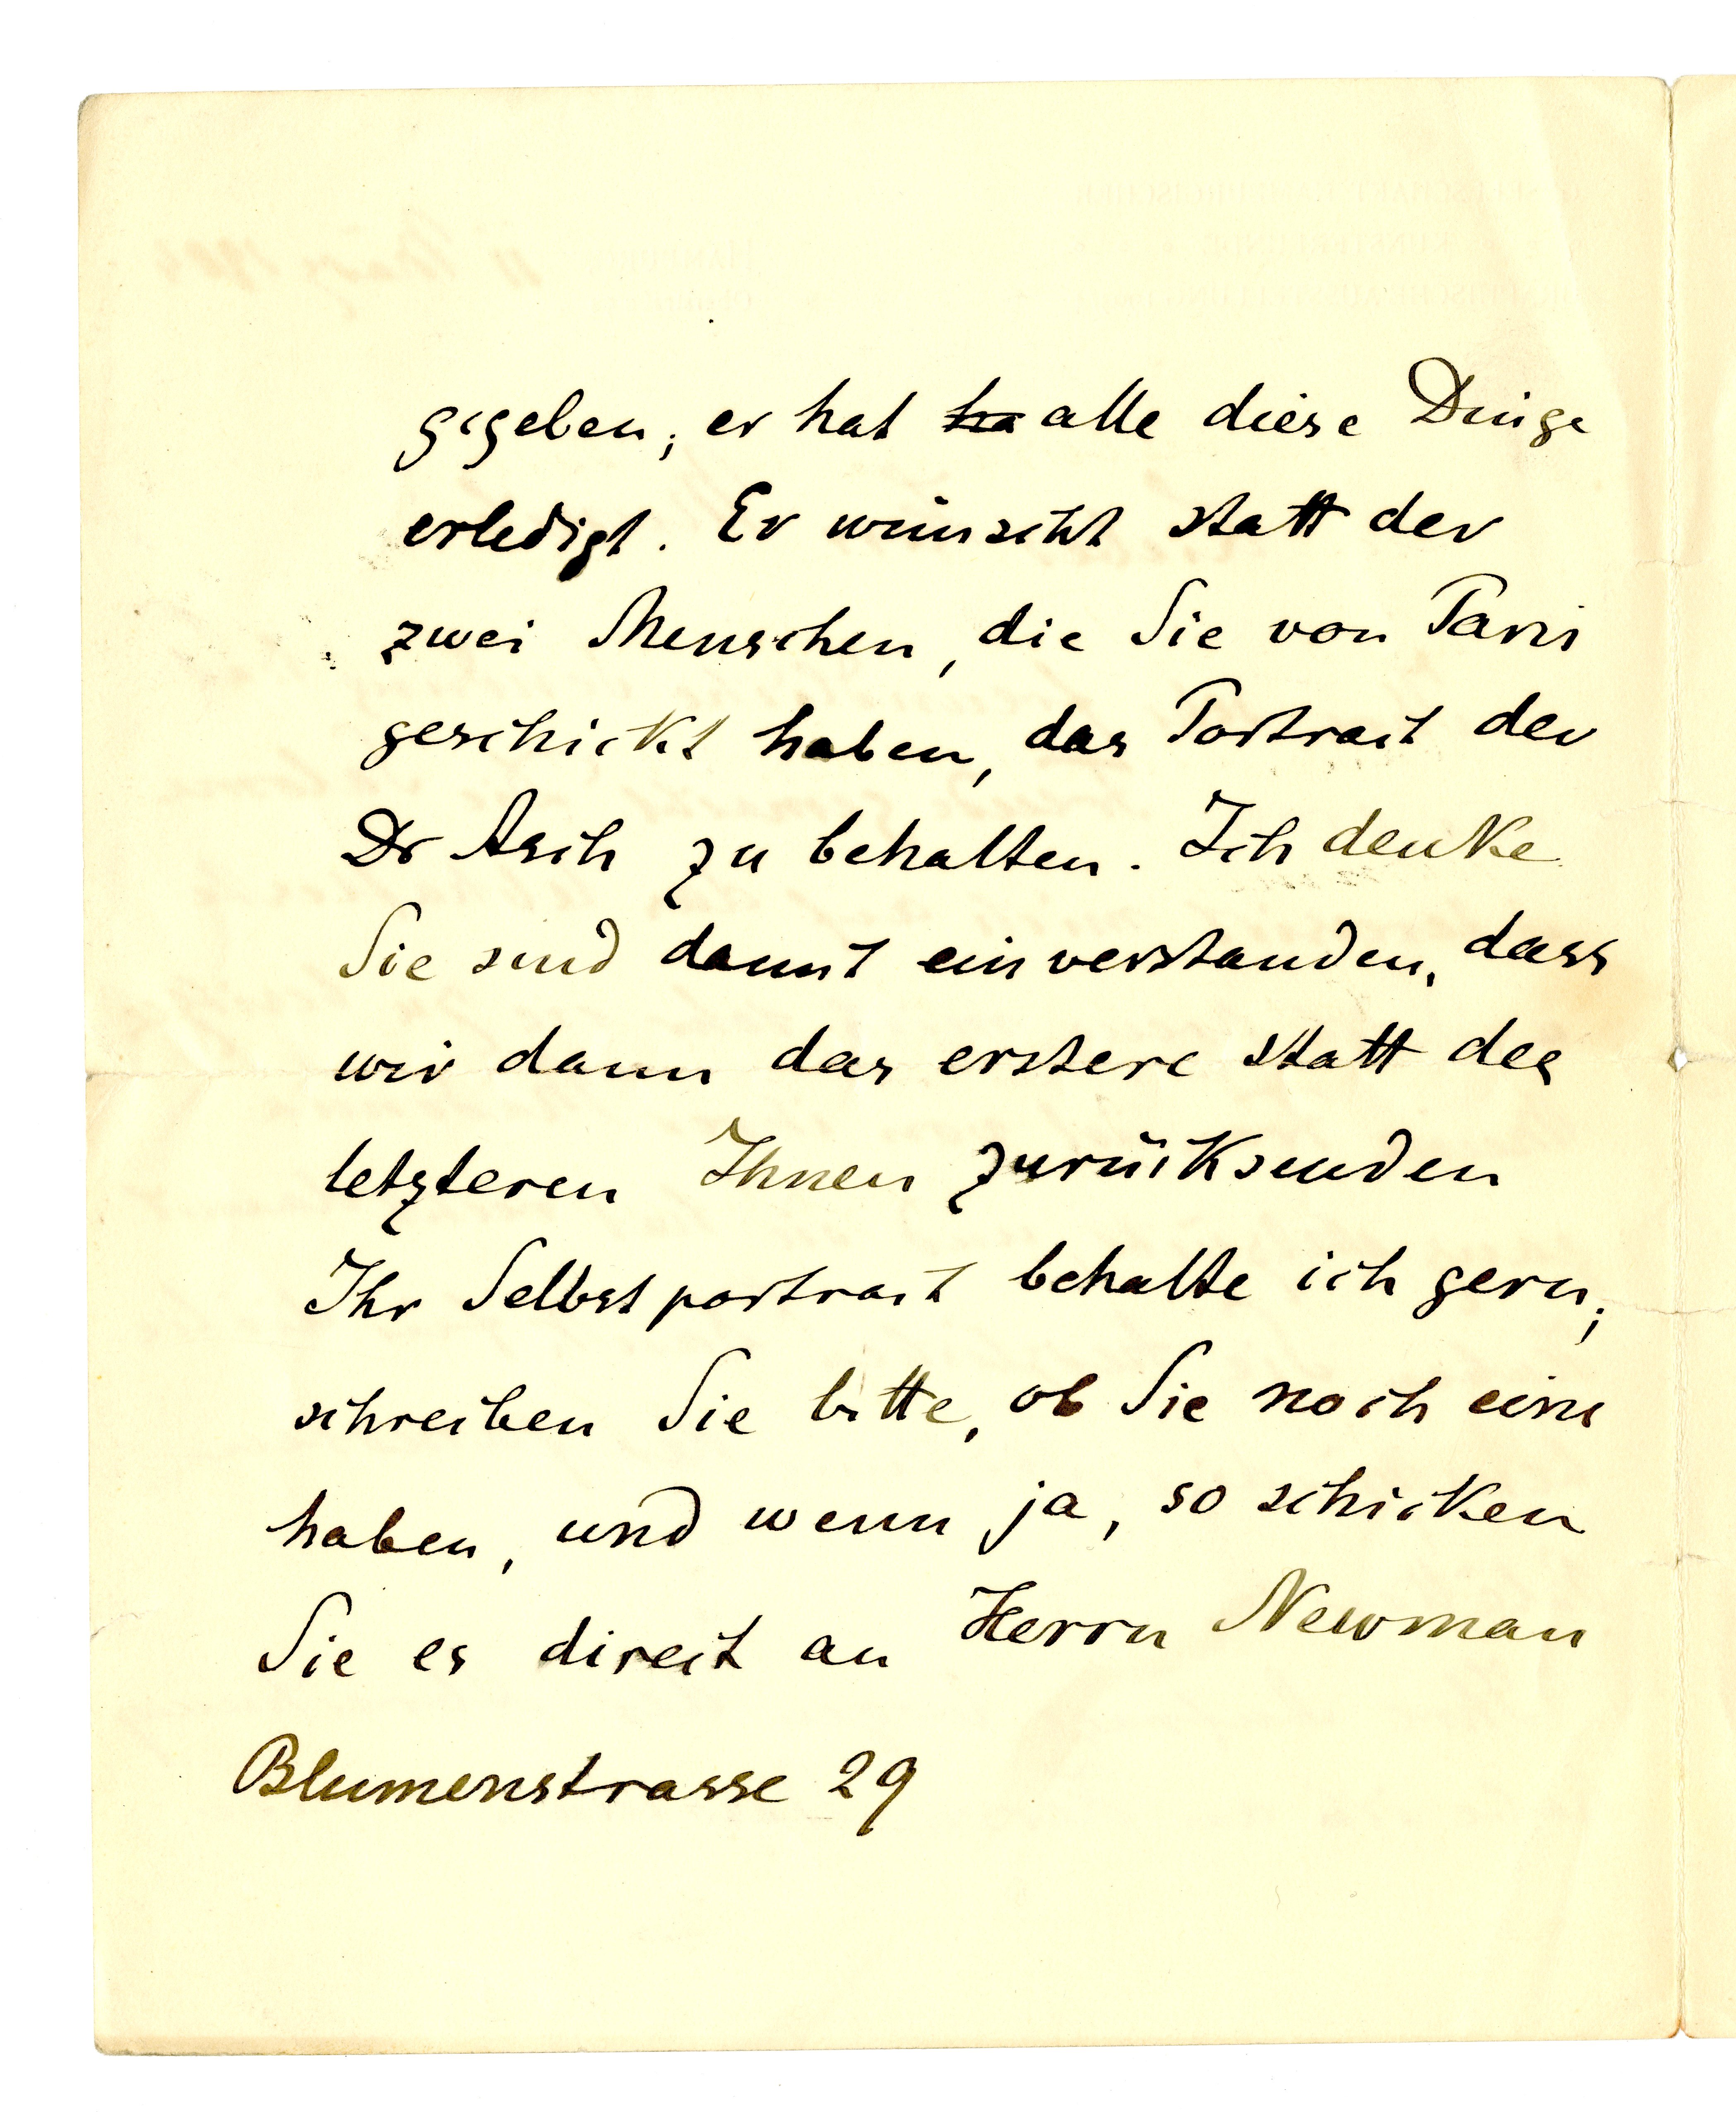 gegeben, er hat ha alle diese Dinge
erledigt. Er wünscht statt der
zwei Menschen, die Sie von Paris
geschickt haben, das Portrait des
Dr Asch zu behalten. Ich denke
Sie sind damit einverstanden, dass
wir dann das erstere statt des
letzteren Ihnen zurücksenden
Ihr Selbstportrait behalte ich gern;
schreiben Sie bitte, ob Sie noch eins
haben, und wenn ja, so schicken
Sie es direct an Herrn Newman
Blumenstrasse 29